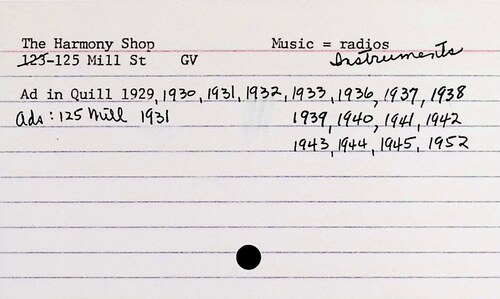 The Harmony Shop Music = radios
Instruments
123-125 Mill St GV
Ad in Quill 1929, 1930, 1931, 1932, 1933, 1936, 1937, 1938
Ads: 125 Mill 1931 1939, 1940, 1941, 1942
1943, 1944, 1945, 1952